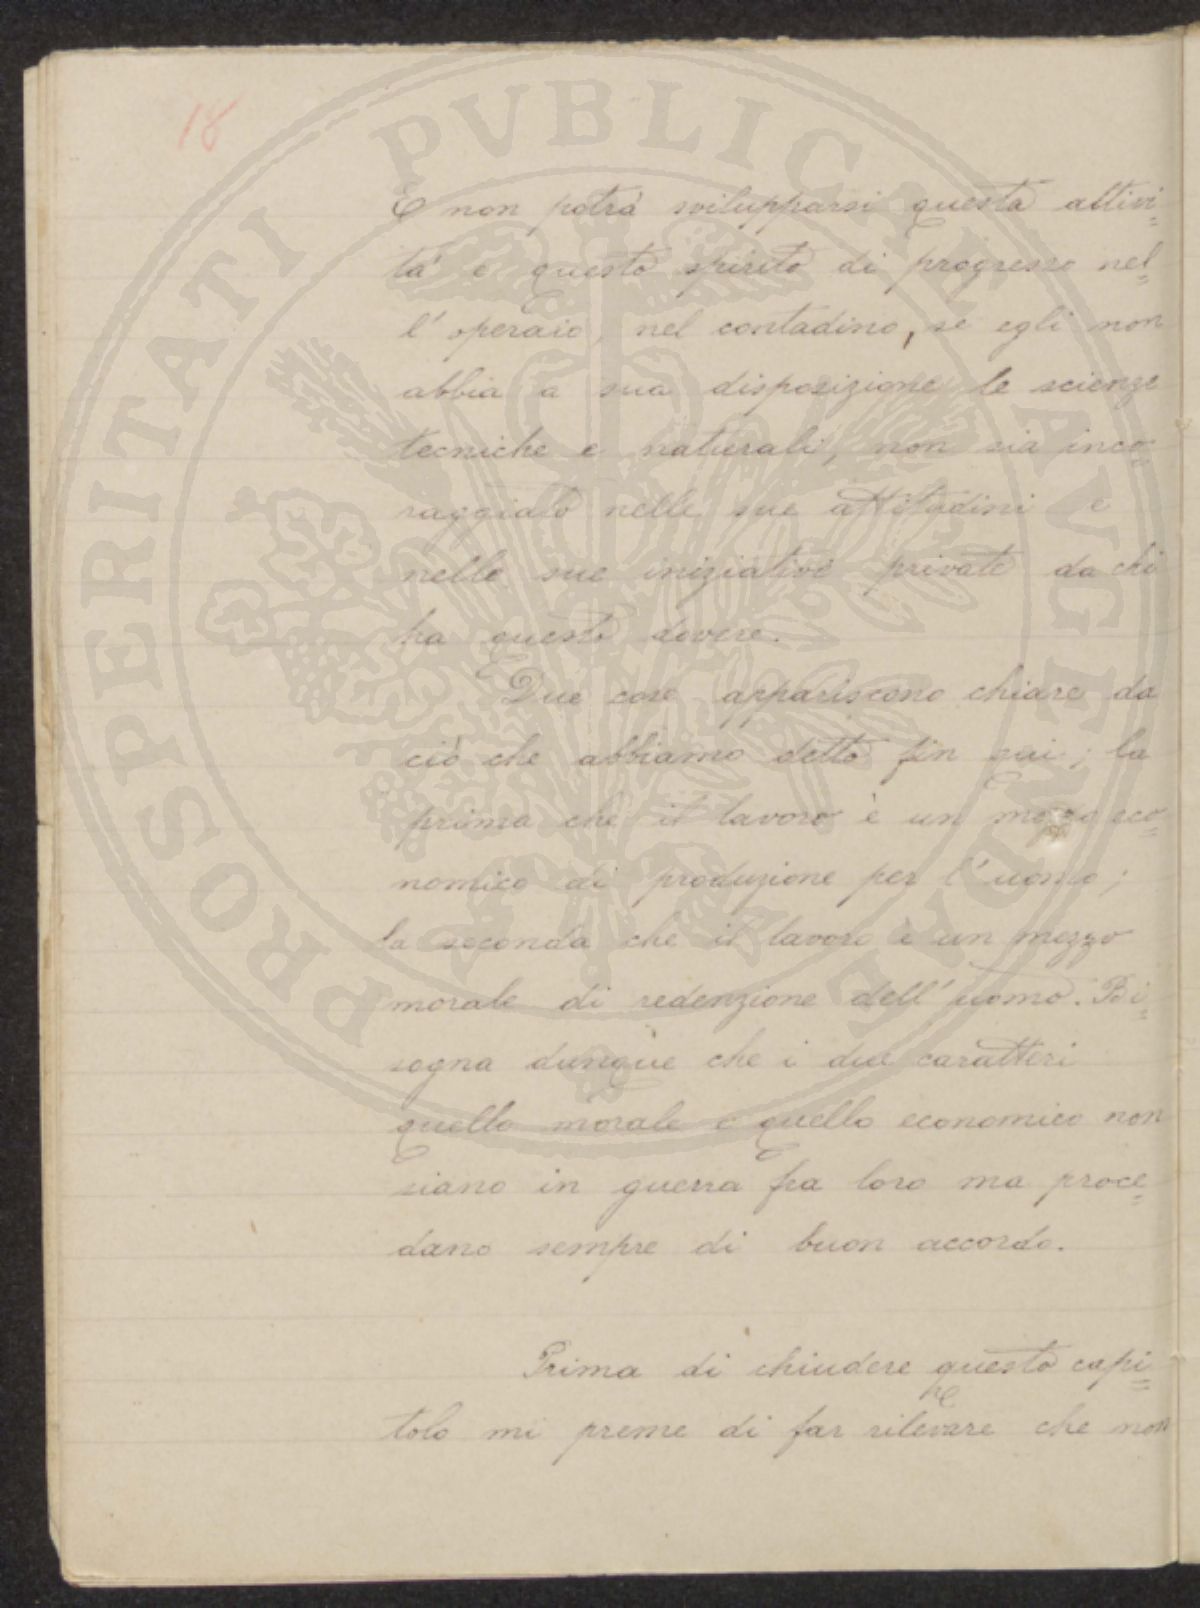 18
E non potrà svilupparsi questa attivi=
tà e questo spirito di progresso nel=
l'operaio, nel contadino, se egli non
abbia a sua disposizione le scienze
tecniche e naturali, non sia inco=
raggiato nelle sue attitudini e
nelle sue iniziative private da chi
ha questo dovere.
Due cose appariscono chiare da
ciò che abbiamo detto fin qui; la
prima che il lavoro è un mezzo eco=
nomico di produzione per l'uomo;
la seconda che il lavoro è un mezzo
morale di redenzione dell'uomo. Bi=
sogna dunque che i due caratteri
quello morale e quello economico non
siano in guerra fra loro ma proce=
dano sempre di buon accordo.
Prima di chiudere questo capi=
tolo mi preme di far rilevare che non
PROSPERITATI PVBLICAE AVGENDAE